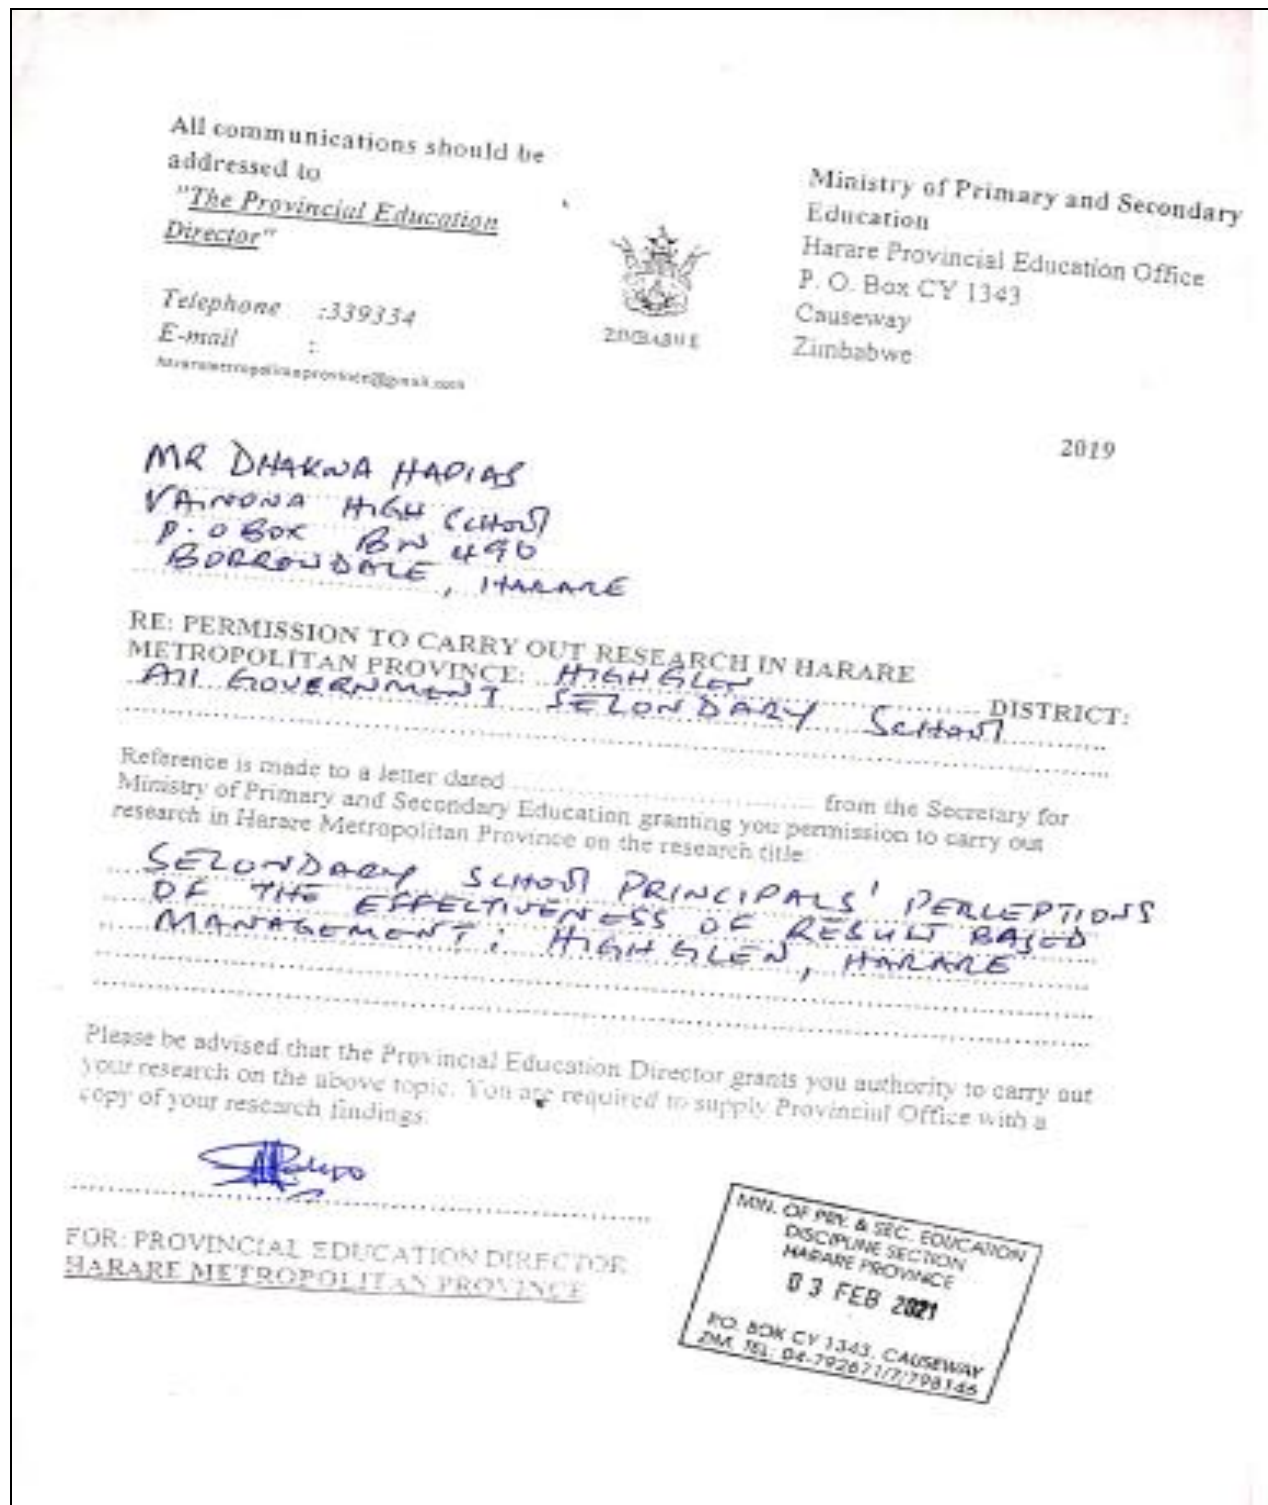 All communications should be
addressed to
"The Provincial Education
Director"
Telephone :339334
E-mail :
ZIMBABWE
Ministry of Primary and Secondary
Education
Harare Provincial Education Office
P. O. Box CY 1343
Causeway
Zimbabwe
2019
MR DHAKWA HADIAS
VAINONA HIGH SCHOOL
P. O BOX BN 490
BORROWDALE, HARARE
RE: PERMISSION TO CARRY OUT RESEARCH IN HARARE
METROPOLITAN PROVINCE: HIGH GLEN DISTRICT:
All GOVERNMENT SECONDARY SCHOOL
Reference is made to a letter dated from the Secretary for
Ministry of Primary and Secondary Education granting you permission to carry out
research in Harare Metropolitan Province on the research title:
SECONDARY SCHOOL PRINCIPALS' PERCEPTIONS
OF THE EFFECTIVENESS OF RESULT BASED
MANAGEMENT: HIGH GLEN, HARARE
Please be advised that the Provincial Education Director grants you authority to carry out
your research on the above topic. You are required to supply Provincial Office with a
copy of your research findings.
FOR: PROVINCIAL EDUCATION DIRECTOR
HARARE METROPOLITAN PROVINCE
MIN. OF PRY. & SEC. EDUCATION
DISCIPLINE SECTION
HARARE PROVINCE
03 FEB 2021
P.O. BOX CY 1343, CAUSEWAY
ZIM. TEL: 04-792671/7/798146